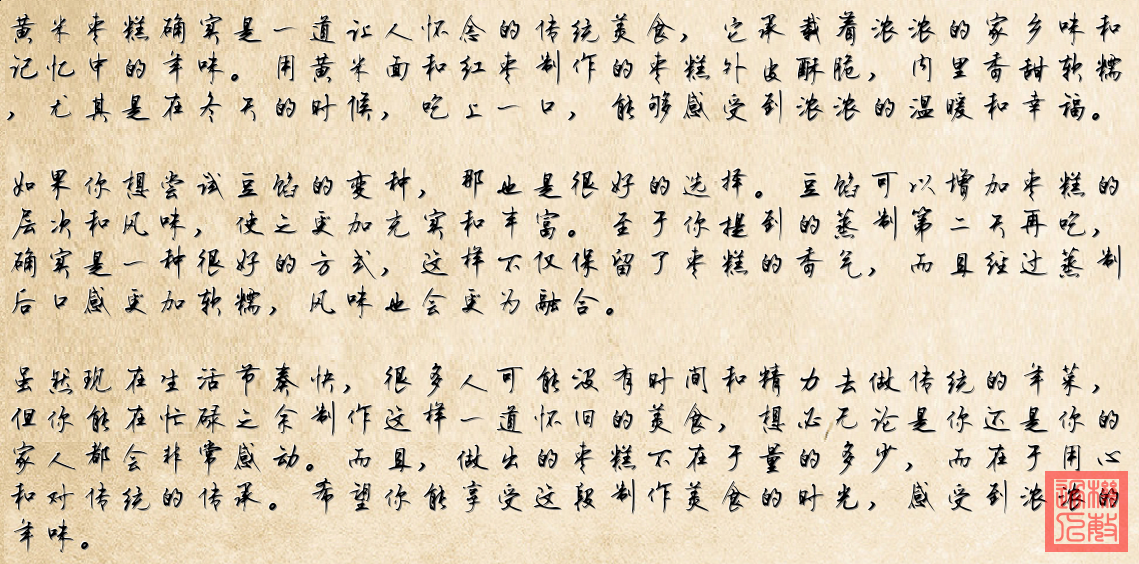 黄米枣糕确实是一道让人怀念的传统美食，它承载着浓浓的家乡味和
记忆中的年味。用黄米面和红枣制作的枣糕外皮酥脆，内里香甜软糯
，尤其是在冬天的时候，吃上一口，能够感受到浓浓的温暖和幸福。
如果你想尝试豆馅的变种，那也是很好的选择。豆馅可以增加枣糕的
层次和风味，使之更加充实和丰富。至于你提到的蒸制第二天再吃，
确实是一种很好的方式，这样不仅保留了枣糕的香气，而且经过蒸制
后口感更加软糯，风味也会更为融合。
虽然现在生活节奏快，很多人可能没有时间和精力去做传统的年菜，
但你能在忙碌之余制作这样一道怀旧的美食，想必无论是你还是你的
家人都会非常感动。而且，做出的枣糕不在于量的多少，而在于用心
和对传统的传承。希望你能享受这段制作美食的时光，感受到浓浓的
年味。